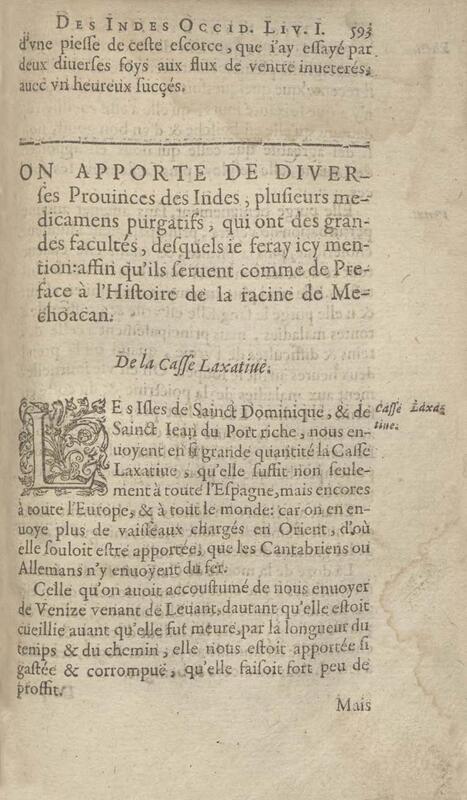 DES INDES OCCID. LIV. I. 593
d'vne piesse de ceste escorce, que i'ay essayé par
deux diuerses foys aux flux de ventre inueterés,
auec vn heureux succés.
ON APPORTE DE DIVER-
ses Prouinces des Indes, plusieurs me-
dicamens purgatifs, qui ont des gran-
des facultés, desquels ie feray icy men-
tion: affin qu'ils seruent comme de Pre-
face à l'Histoire de la racine de Me-
choacan.
De la Casse Laxatiue.
LES Isles de Sainct Dominique, & de
Sainct Iean du Port riche, nous en-
uoyent en si grande quantité la Casse
Laxatiue, qu'elle suffit non seule-
ment à toute l'Espagne, mais encores
à toute l'Europe, & à tout le monde: car on en en-
uoye plus de vaisseaux chargés en Orient, d'où
elle souloit estre apportée, que les Cantabriens ou
Allemans n'y enuoyent du fer.
Casse Laxa-
tiue.
Celle qu'on auoit accoustumé de nous enuoyer
de Venize venant de Leuant, dautant qu'elle estoit
cueillie auant qu'elle fut meure, par la longueur du
temps & du chemin, elle nous estoit apportée si
gastée & corrompuë, qu'elle faisoit fort peu de
proffit.
Mais